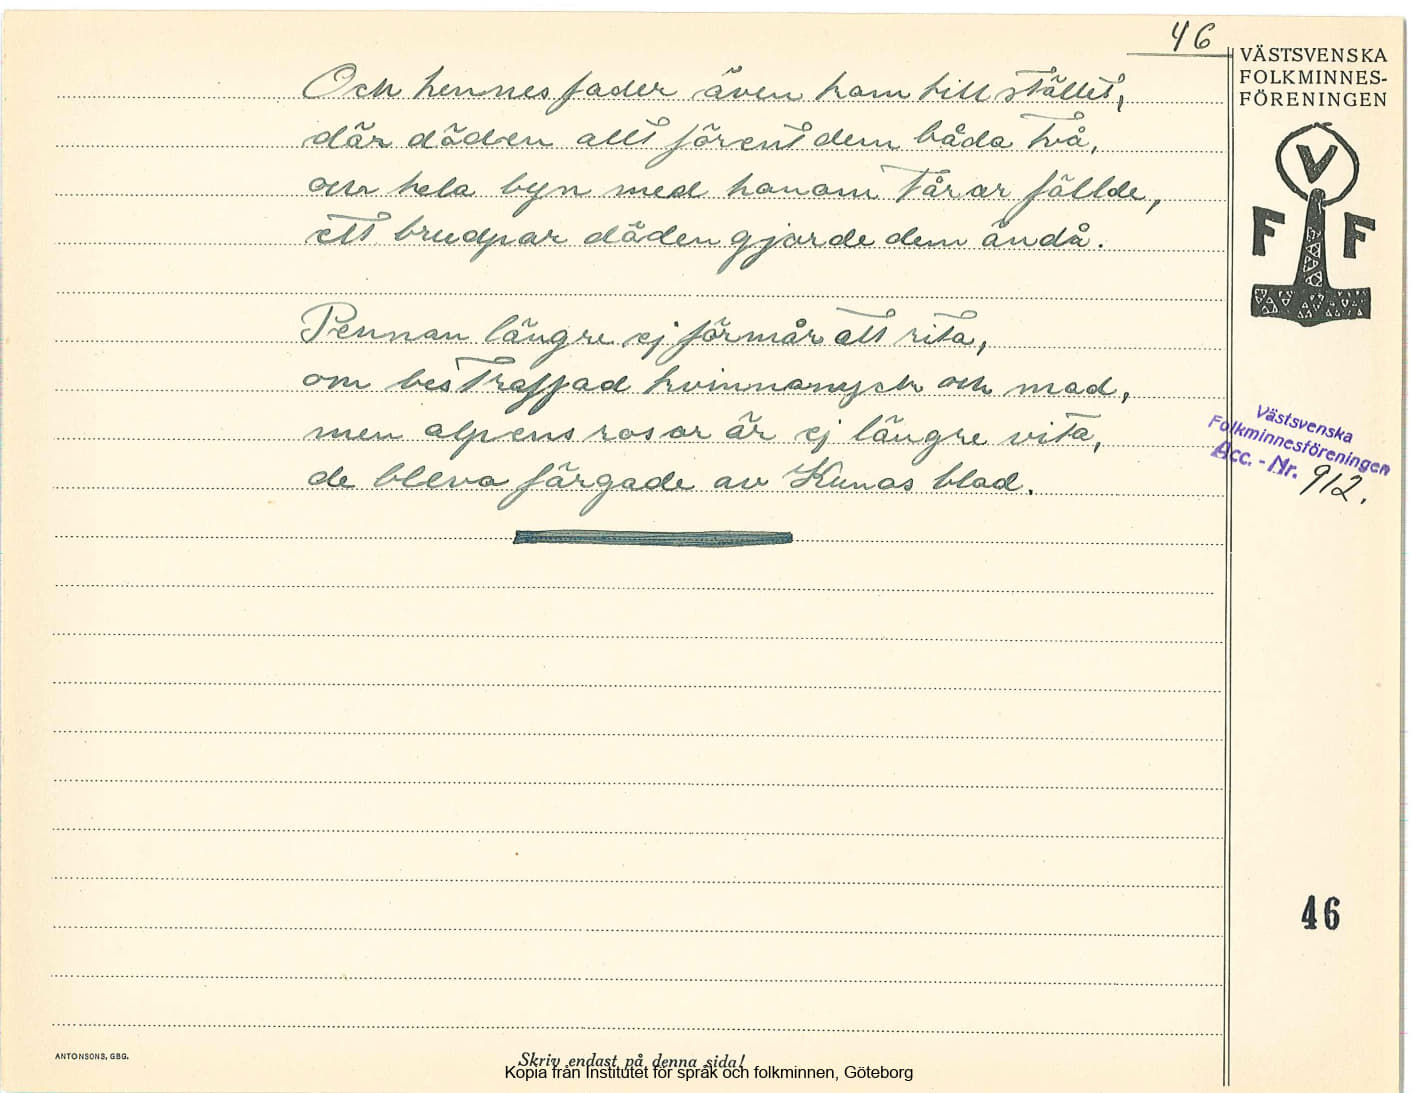 46
Och hennes fader även kom till stället,
där döden allt förent dem båda två,
och hela byn med honom tårar fällde,
ett brudpar döden gjorde dem ändå.
Pennan längre ej förmår att rita,
om bestraffad kvinnonyck och mod,
men alpens rosor är ej längre vita,
de bleva färgade av Kunos blod.
VÄSTSVENSKA
FOLKMINNES-
FÖRENINGEN
V
F F
Västsvenska
Folkminnesföreningen
Acc.-Nr. 912.
46
ANTONSONS, GBG.
Skriv endast på denna sida!
Kopia från Institutet för språk och folkminnen, Göteborg